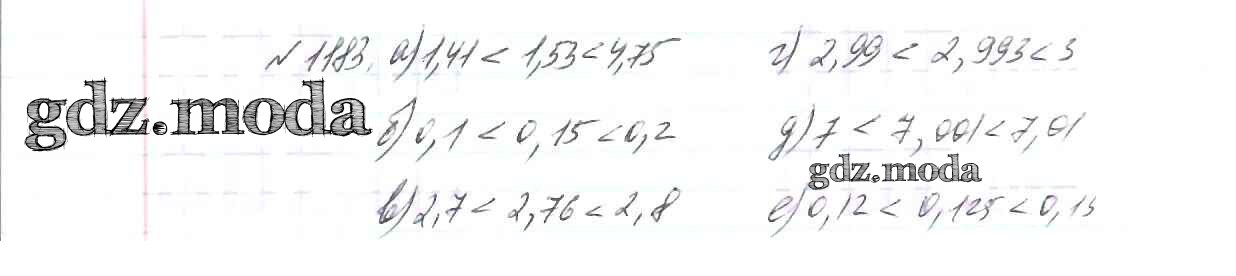 № 1183. а) 1,41 < 1,53 < 4,75
г) 2,99 < 2,993 < 3
gdz.moda
б) 0,1 < 0,15 < 0,2
д) 7 < 7,001 < 7,01
gdz.moda
в) 2,7 < 2,76 < 2,8
е) 0,12 < 0,125 < 0,13